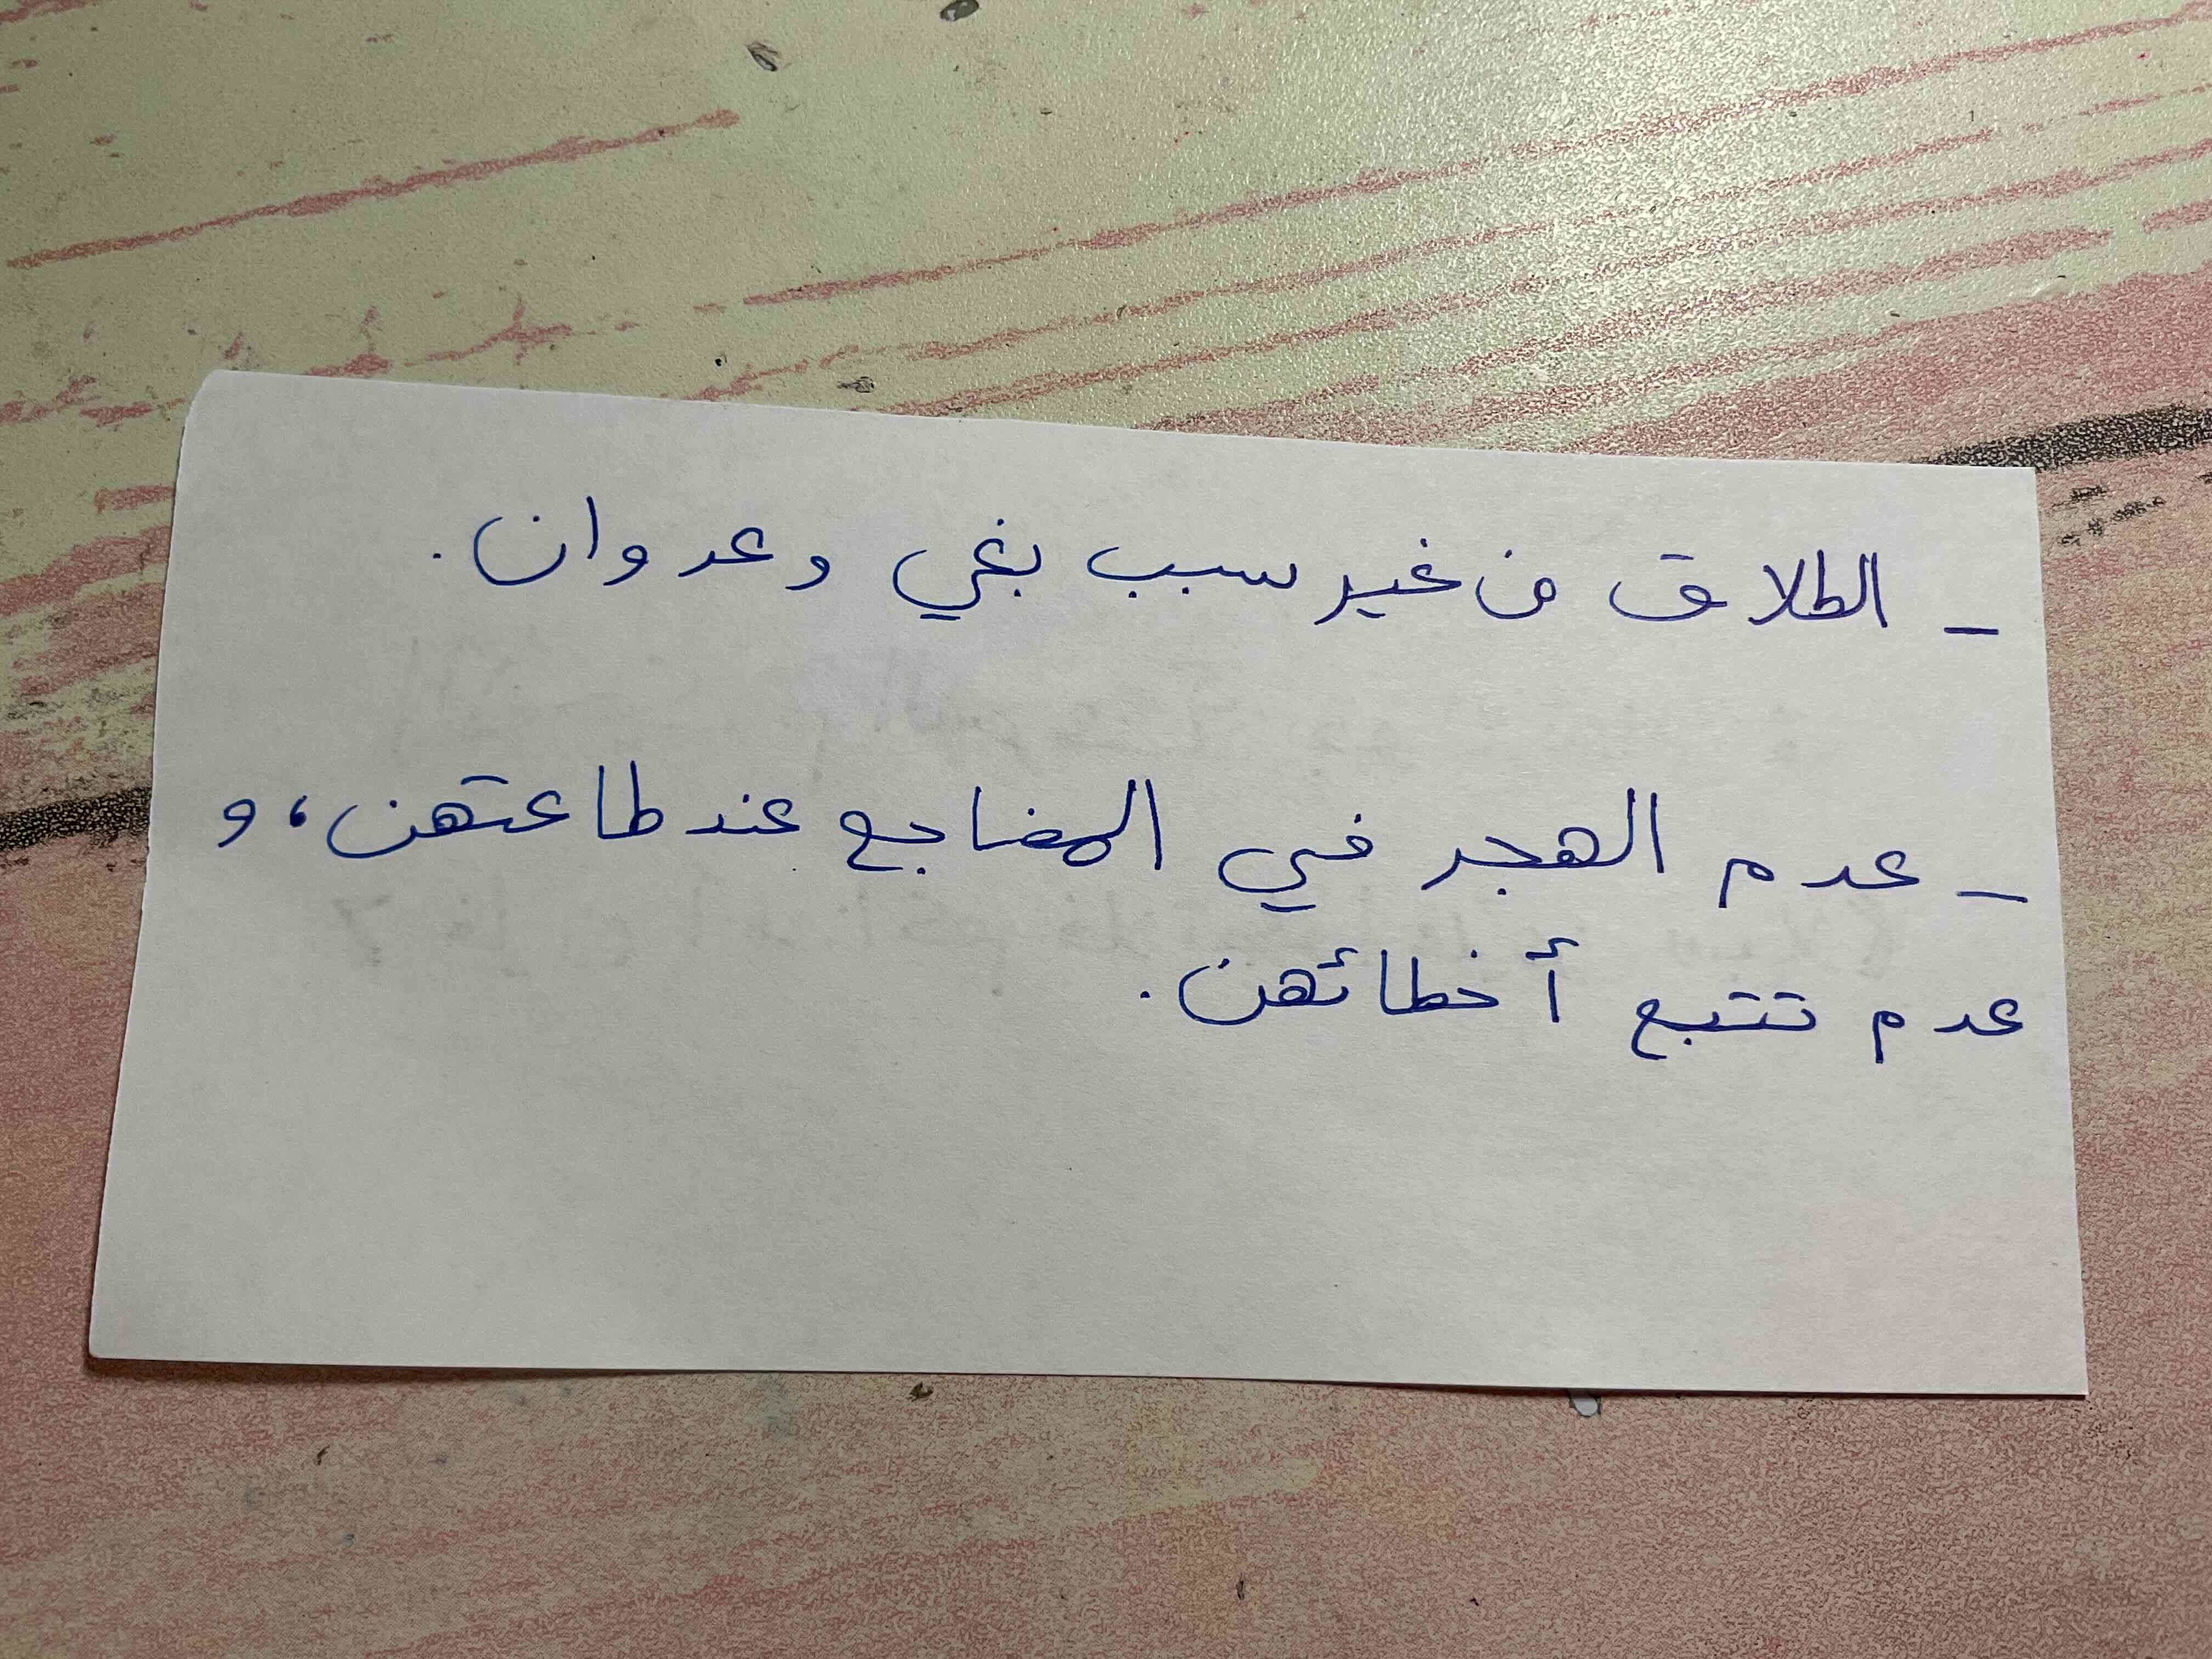 - الطلاق من غير سبب بغي وعدوان.
- عدم الهجر في المضاجع عند طاعتهن، و
عدم تتبع أخطائهن.